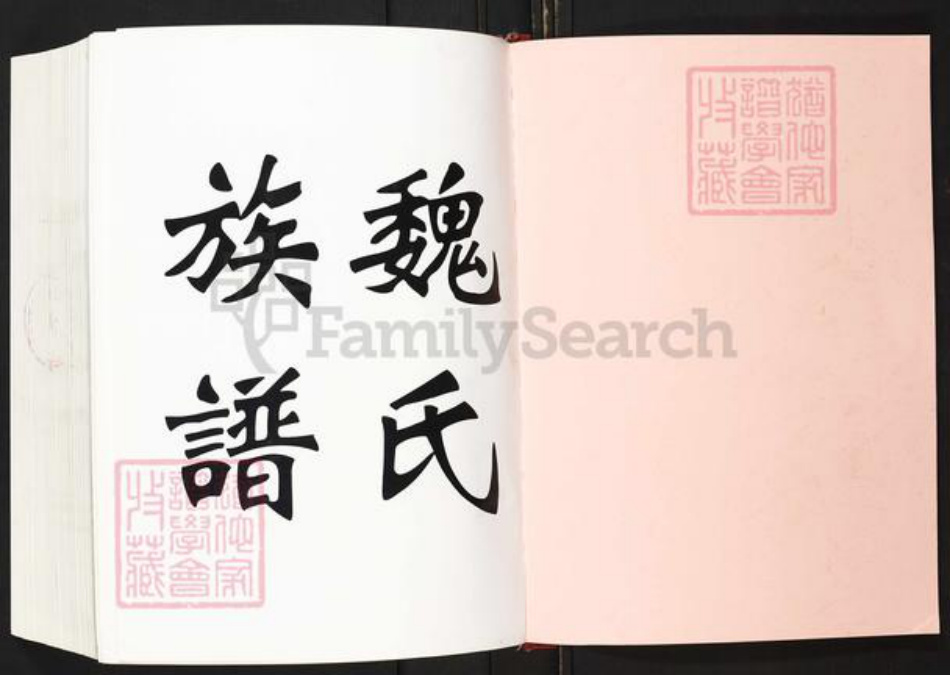 魏氏
族譜
猶他家
譜學會
收藏
猶他家
譜學會
收藏
FamilySearch